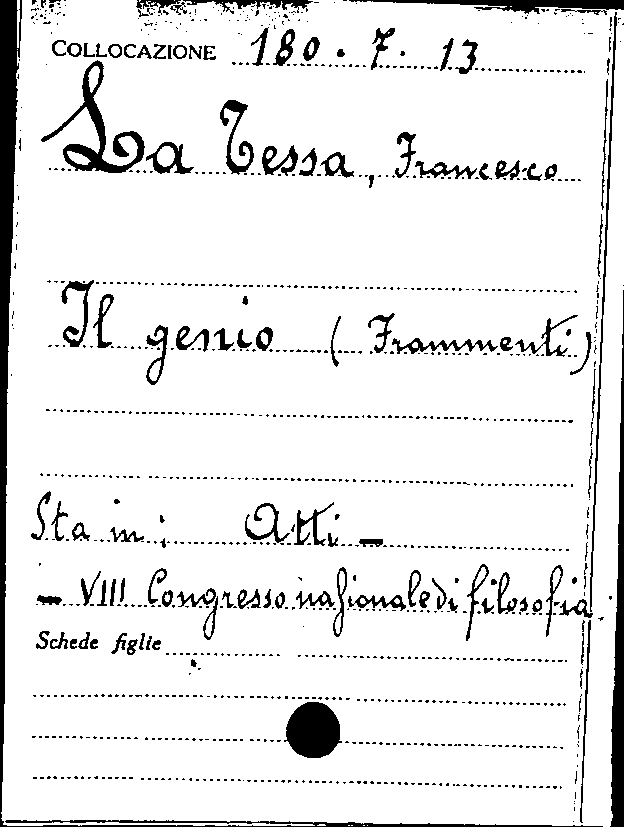 COLLOCAZIONE 180.7.13
La Tessa, Francesco
Il genio (Frammenti)
Sta in: Atti -
- VIII Congresso nazionale di filosofia.
Schede figlie